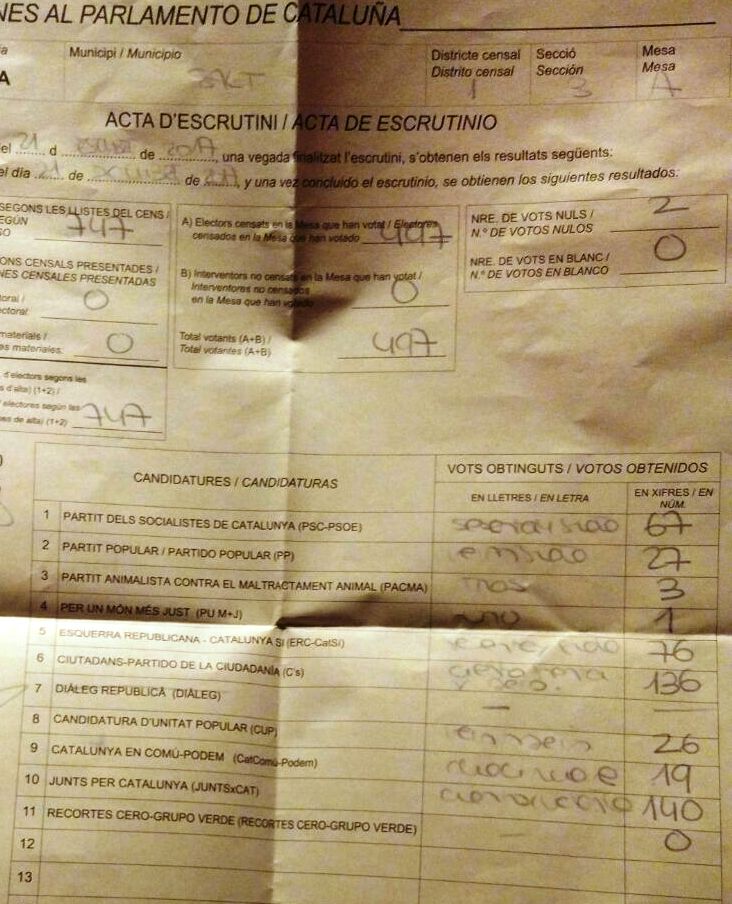 NES AL PARLAMENTO DE CATALUÑA
ia Municipi / Municipio Districte censal Secció Mesa
A SALT Distrito censal Sección Mesa
1 3 A
ACTA D'ESCRUTINI / ACTA DE ESCRUTINIO
el 21 d de 2017, una vegada finalitzat l'escrutini, s'obtenen els resultats següents:
el dia 21 de de, y una vez concluido el escrutinio, se obtienen los siguientes resultados:
SEGONS LES LLISTES DEL CENS /
EGÚN
SO 747
ONS CENSALS PRESENTADES /
NES CENSALES PRESENTADAS
toral /
ectoral 0
materials /
es materiales. 0
d'electors segons les
s d'alta) (1+2) /
electores según las
nes de alta) (1+2) 747
A) Electors censats en la Mesa que han votat / Electores
censados en la Mesa que han votado 497
B) Interventors no censats en la Mesa que han votat /
Interventores no censados
en la Mesa que han votado 0
Total votants (A+B) /
Total votantes (A+B) 497
NRE. DE VOTS NULS /
N.º DE VOTOS NULOS 2
NRE. DE VOTS EN BLANC /
N.º DE VOTOS EN BLANCO 0
CANDIDATURES / CANDIDATURAS VOTS OBTINGUTS / VOTOS OBTENIDOS
EN LLETRES / EN LETRA EN XIFRES / EN NÚM.
1 PARTIT DELS SOCIALISTES DE CATALUNYA (PSC-PSOE) 67
2 PARTIT POPULAR / PARTIDO POPULAR (PP) 27
3 PARTIT ANIMALISTA CONTRA EL MALTRACTAMENT ANIMAL (PACMA) 3
4 PER UN MÓN MÉS JUST (PU M+J) 1
5 ESQUERRA REPUBLICANA - CATALUNYA SÍ (ERC-CatSí) 76
6 CIUTADANS-PARTIDO DE LA CIUDADANÍA (C's) 136
7 DIÀLEG REPUBLICÀ (DIÀLEG) — —
8 CANDIDATURA D'UNITAT POPULAR (CUP) 26
9 CATALUNYA EN COMÚ-PODEM (CatComú-Podem) 19
10 JUNTS PER CATALUNYA (JUNTSxCAT) 140
11 RECORTES CERO-GRUPO VERDE (RECORTES CERO-GRUPO VERDE) 0
12
13